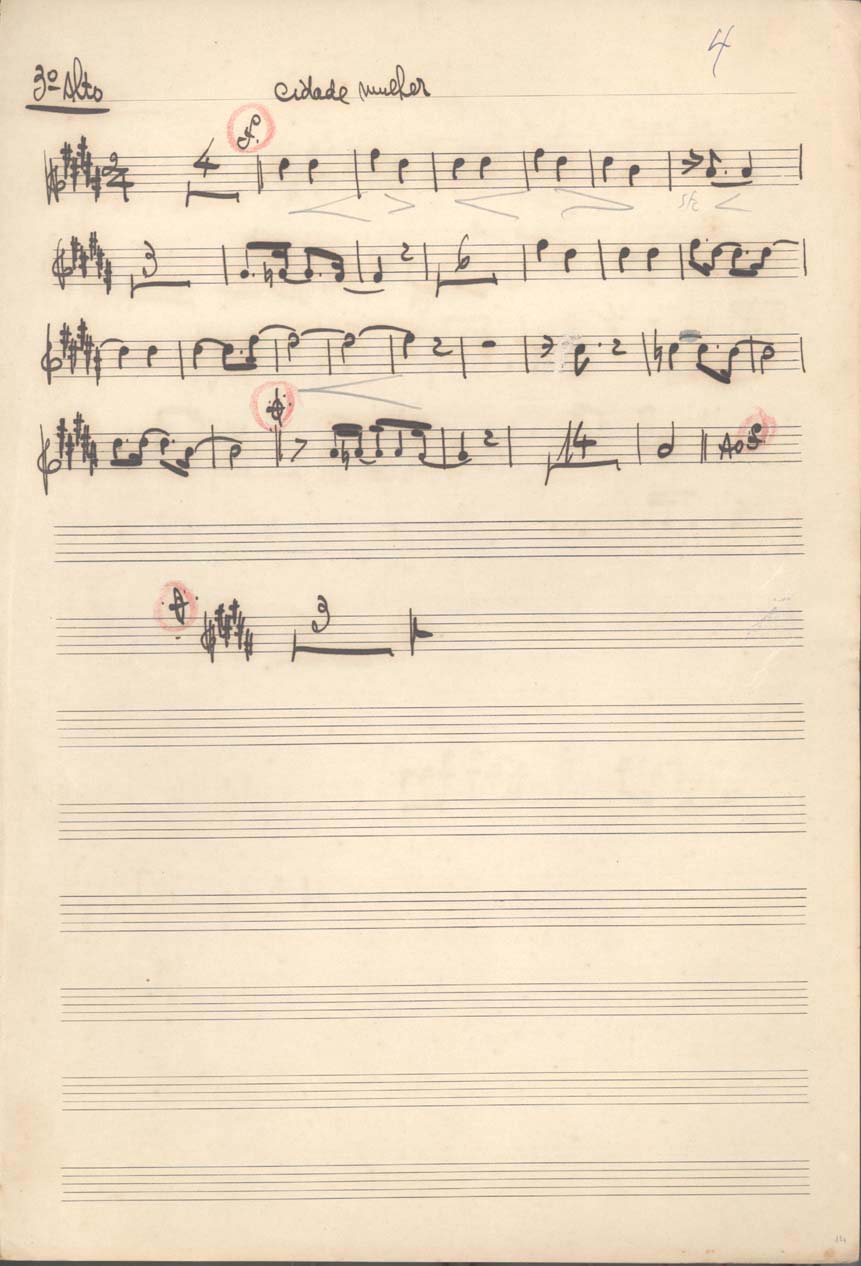 4
3º Alto cidade mulher
2 4 4
sfz
3 6
14 Ao
3
14